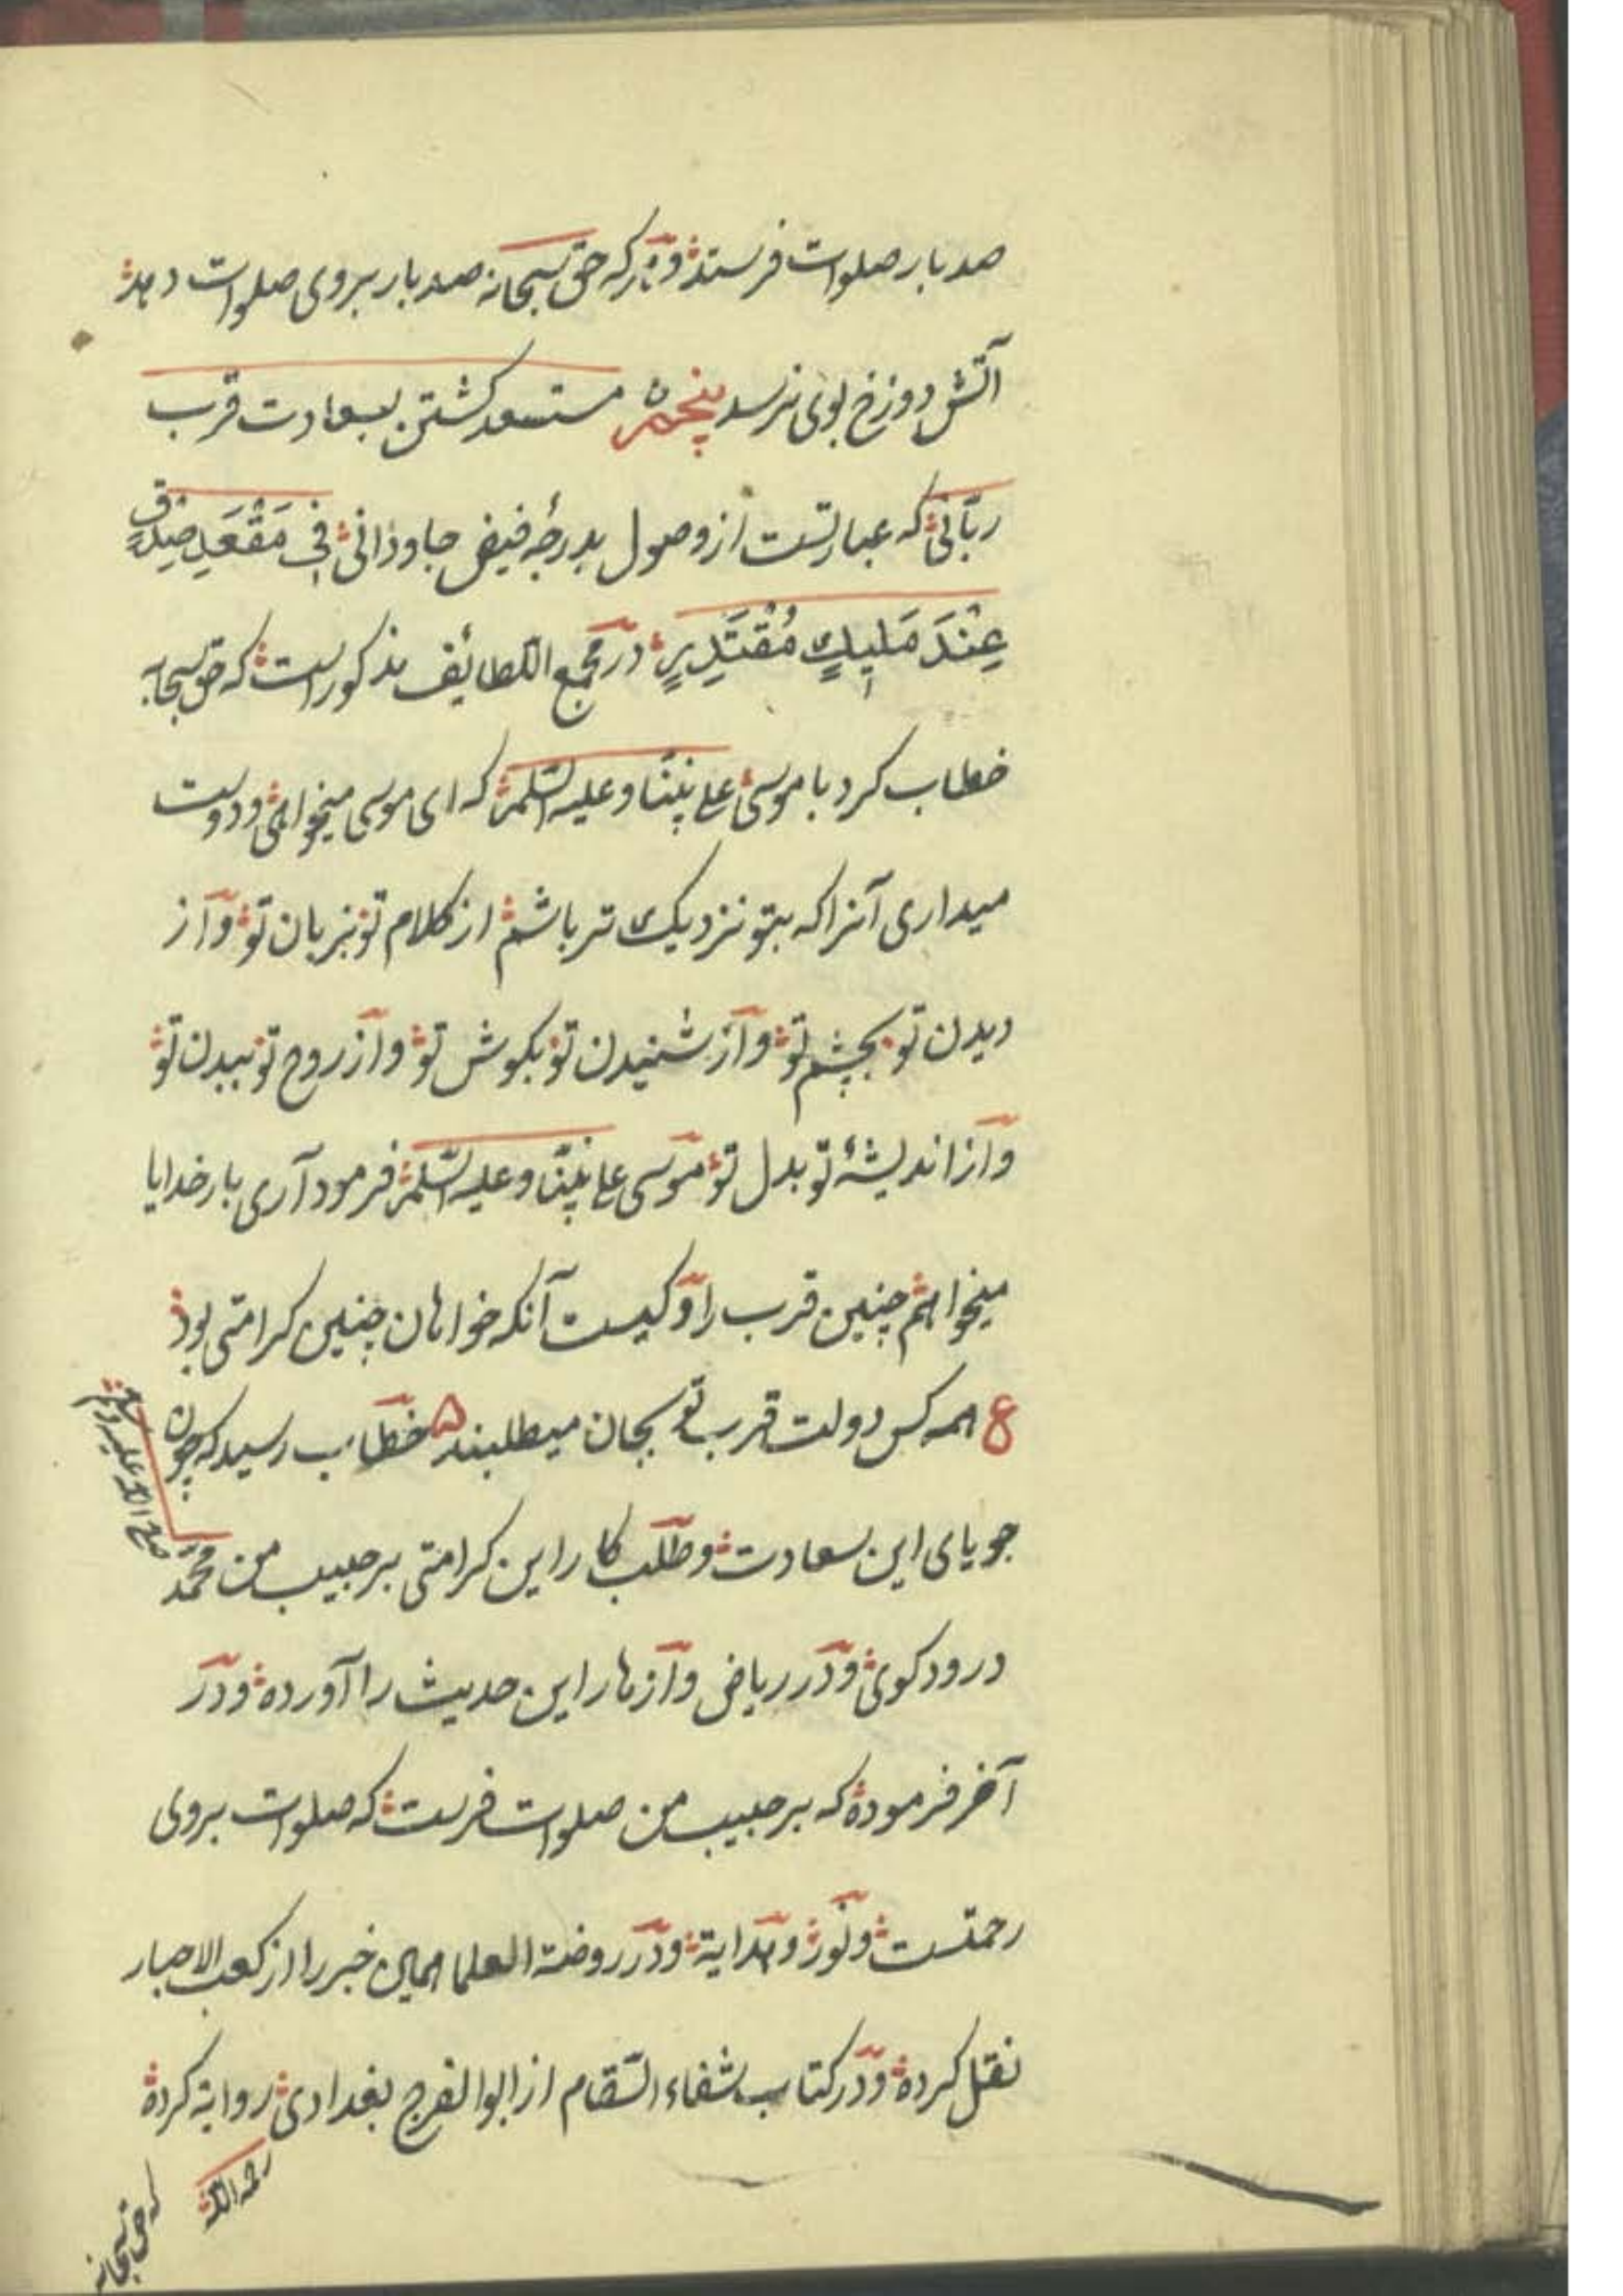 صد بار صلوات فرستد و هر که حق سبحانه صد بار بر وی صلوات دهد
آتش دوزخ بوی نرسد پنجم مستسعد کشتن بسعادت قرب
ربّانی که عبارتست از وصول بدرجهٔ فیض جاودانی فِی مَقْعَدِ صِدْقٍ
عِنْدَ مَلِيكٍ مُقْتَدِرٍ در مجمع اللطائف مذکور است که حق سبحانه
خطاب کرد با موسی علی نبیّنا و علیه السّلم که ای موسی میخواهی و دوست
میداری آنرا که بتو نزدیک تر باشم از کلام تو بزبان تو و از
دیدن تو بچشم تو و از شنیدن تو بکوش تو و از روح تو ببدن تو
و از اندیشهٔ تو بدل تو موسی علی نبیّنا و علیه السّلم فرمود آری بار خدایا
میخواهم چنین قرب را و کیست آنکه خواهان چنین کرامتی بود
ع همه کس دولت قرب تو بجان میطلبند ه خطاب رسید که چون
جویای این سعادت و طلب کار این کرامتی بر حبیب من محمّد
صلی الله علیه و سلم
درود کوی و در ریاض و ازهار این حدیث را آورده و در
آخر فرموده که بر حبیب من صلوات فرست که صلوات بر وی
رحمتست و نور و هدایة و در روضة العلما همین خبر را از کعب الاحبار
نقل کرده و در کتاب شفاء السّقام از ابو الفرج بغدادی روایة کرده
رحمه الله
که حق سبحانه